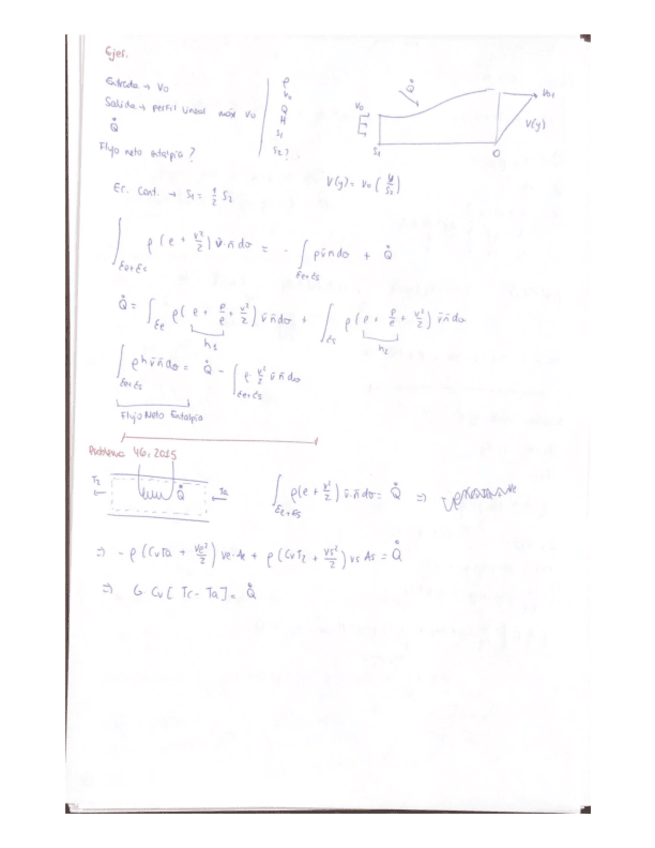 Ejer.
Entrada → V₀
Salida → perfil lineal máx V₀
Q̇
Flujo neto entalpía?
ρ
V₀
Q
H
S₁
S₂?
V₀
Q̇
V(y)
S₁
O
V(y) = V₀ (y/S₂)
Ec. Cont. → S₁ = 1/2 S₂
∫_{Ee+Es} ρ(e + v²/2) v̄·n̄ dσ = - ∫_{Ee+Es} p v̄ n̄ dσ + Q̇
Q̇ = ∫_{Ee} ρ(e + p/ρ + v²/2) v̄ n̄ dσ + ∫_{Es} ρ(e + p/ρ + v²/2) v̄ n̄ dσ
h₁
h₂
∫_{Ee+Es} ρ h v̄ n̄ dσ = Q̇ - ∫_{Ee+Es} ρ v²/2 v̄ n̄ dσ
Flujo Neto Entalpía
Problema 46, 2015
T₂
Q̇
Ta
∫_{Ee+Es} ρ(e + v²/2) v̄·n̄ dσ = Q̇ ⇒
⇒ - ρ(CvTa + ve²/2) ve·Ae + ρ(CvT₂ + vs²/2) vs As = Q̇
⇒ G·Cv[Tc - Ta] = Q̇